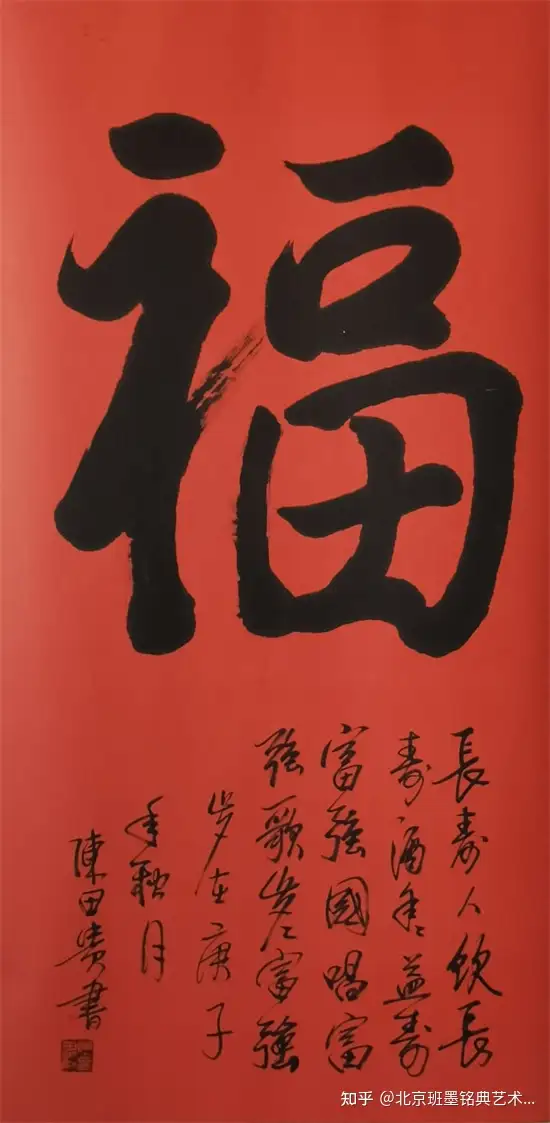 福
長寿人飲長
寿酒年々益寿
富強國唱富
強歌岁々富強
岁在庚子
年秋月
陳田貴書
知乎 @北京班墨铭典艺术...